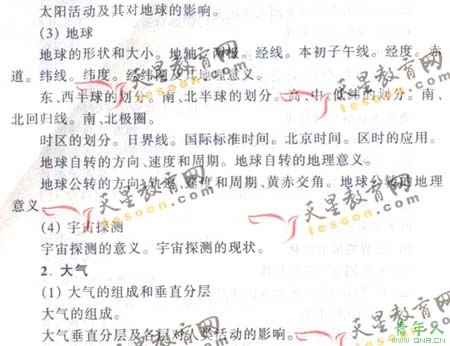 太阳活动及其对地球的影响。
(3) 地球
地球的形状和大小。地轴。两极。经线。本初子午线。经度。赤
道。纬线。纬度。经纬网及其地理意义。
东、西半球的划分。南、北半球的划分。高、中、低纬的划分。南、
北回归线。南、北极圈。
时区的划分。日界线。国际标准时间。北京时间。区时的应用。
地球自转的方向、速度和周期。地球自转的地理意义。
地球公转的方向、轨道、速度和周期、黄赤交角。地球公转的地理
意义
(4) 宇宙探测
宇宙探测的意义。宇宙探测的现状。
2. 大气
(1) 大气的组成和垂直分层
大气的组成。
大气垂直分层及各层对人类活动的影响。
天星教育网
tesoon.com
天星教育网
tesoon.com
天星教育网
tesoon.com
天星教育网
tesoon.com
天星教育网
tesoon.com
青年人
WWW.QNR.CN